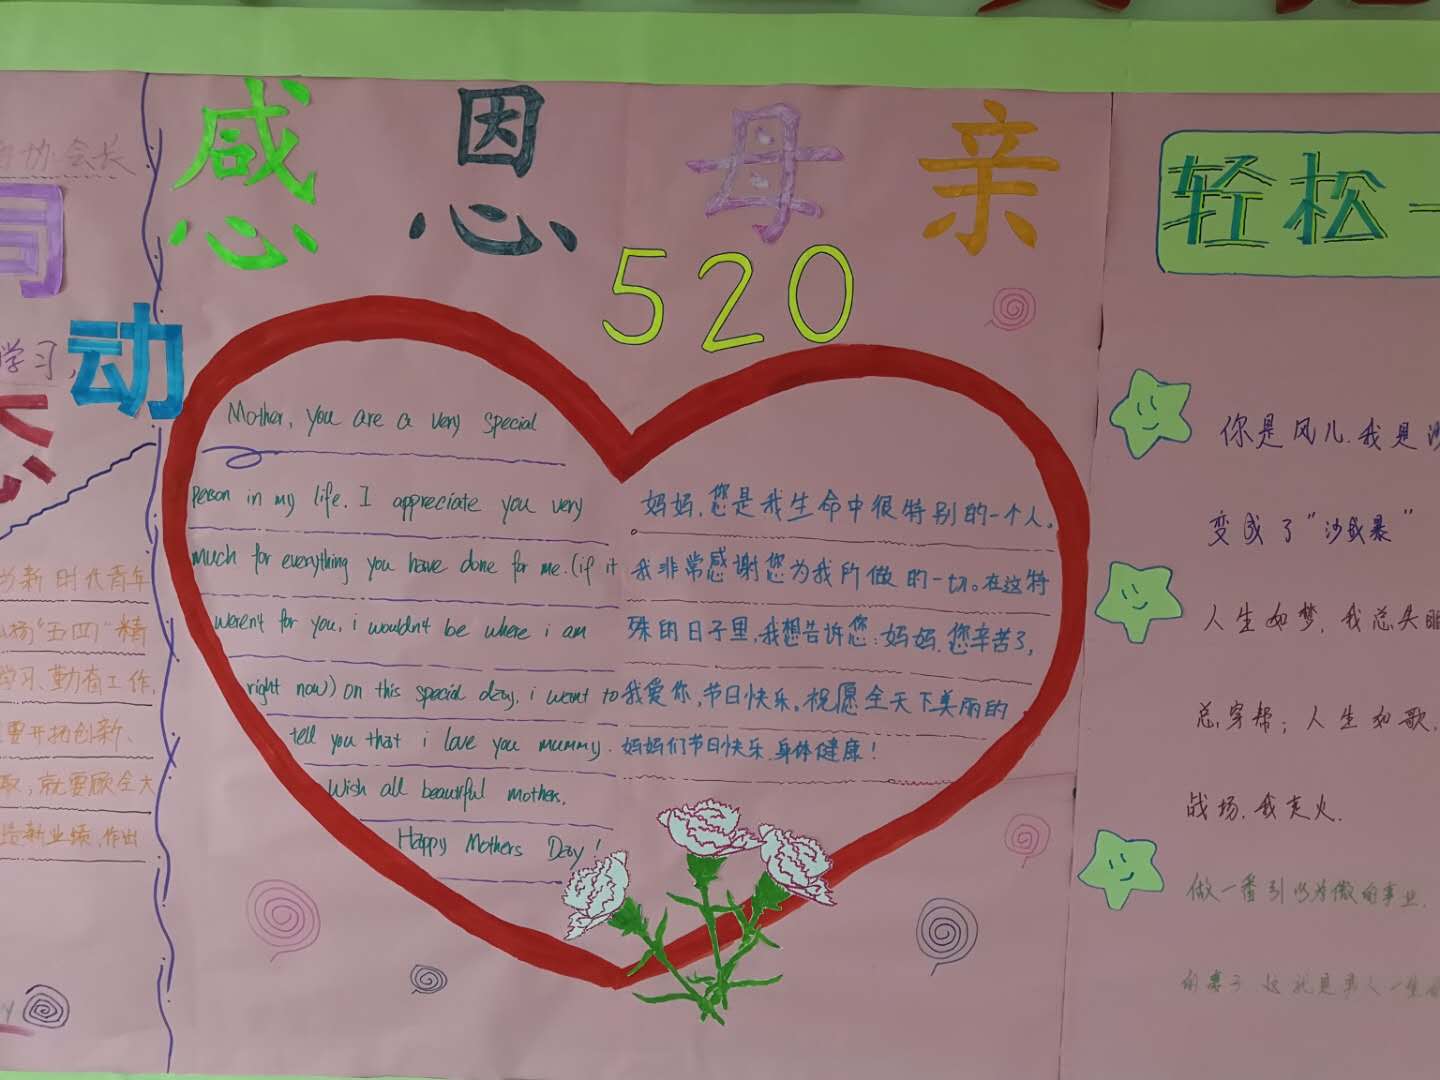 感恩母亲
520
Mother, you are a very special
person in my life. I appreciate you very
much for everything you have done for me.(if it
weren't for you, i wouldn't be where i am
right now) On this special day, i want to
tell you that i love you mummy.
Wish all beautiful mothers,
Happy Mothers Day!
妈妈,您是我生命中很特别的一个人。
我非常感谢您为我所做的一切。在这特
殊的日子里,我想告诉您:妈妈,您辛苦了,
我爱你,节日快乐。祝愿全天下美丽的
妈妈们节日快乐,身体健康!
会长
同
学习,
动
态
新时代青年
扬"五四"精
学习、勤奋工作,
重开拓创新、
取,就要顾全大
新业绩,作出
轻松一
你是风儿,我是沙
变成了"沙尘暴"
人生如梦,我总失眠
总穿帮;人生如歌,
战场,我走火.
做一番引以为傲的事业,